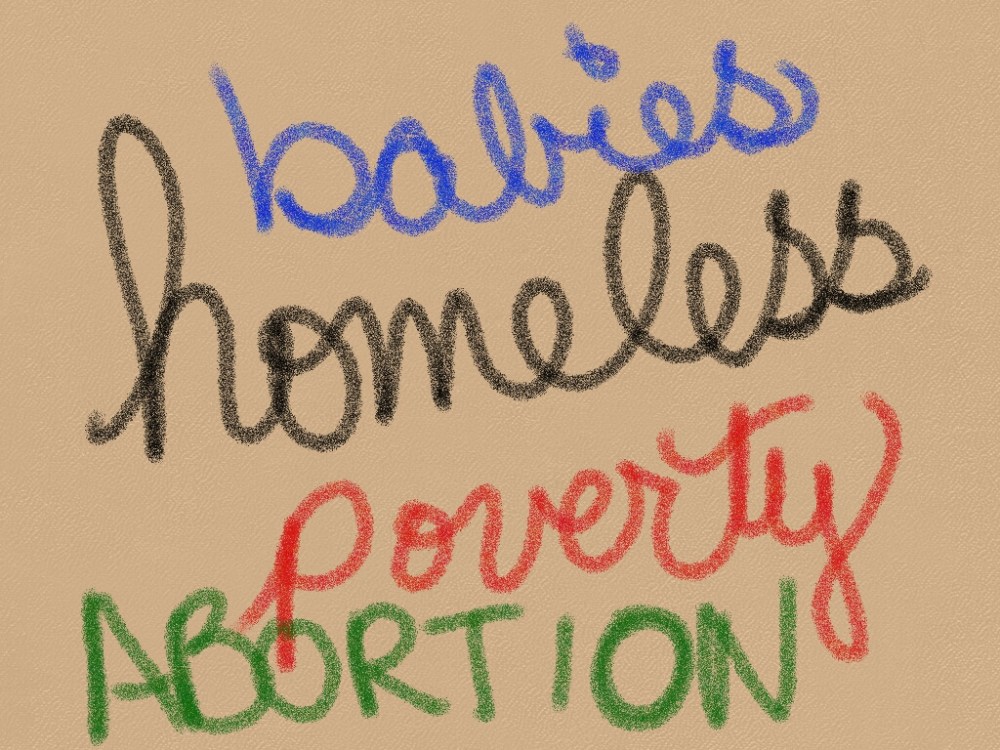 babies
homeless
poverty
ABORTION